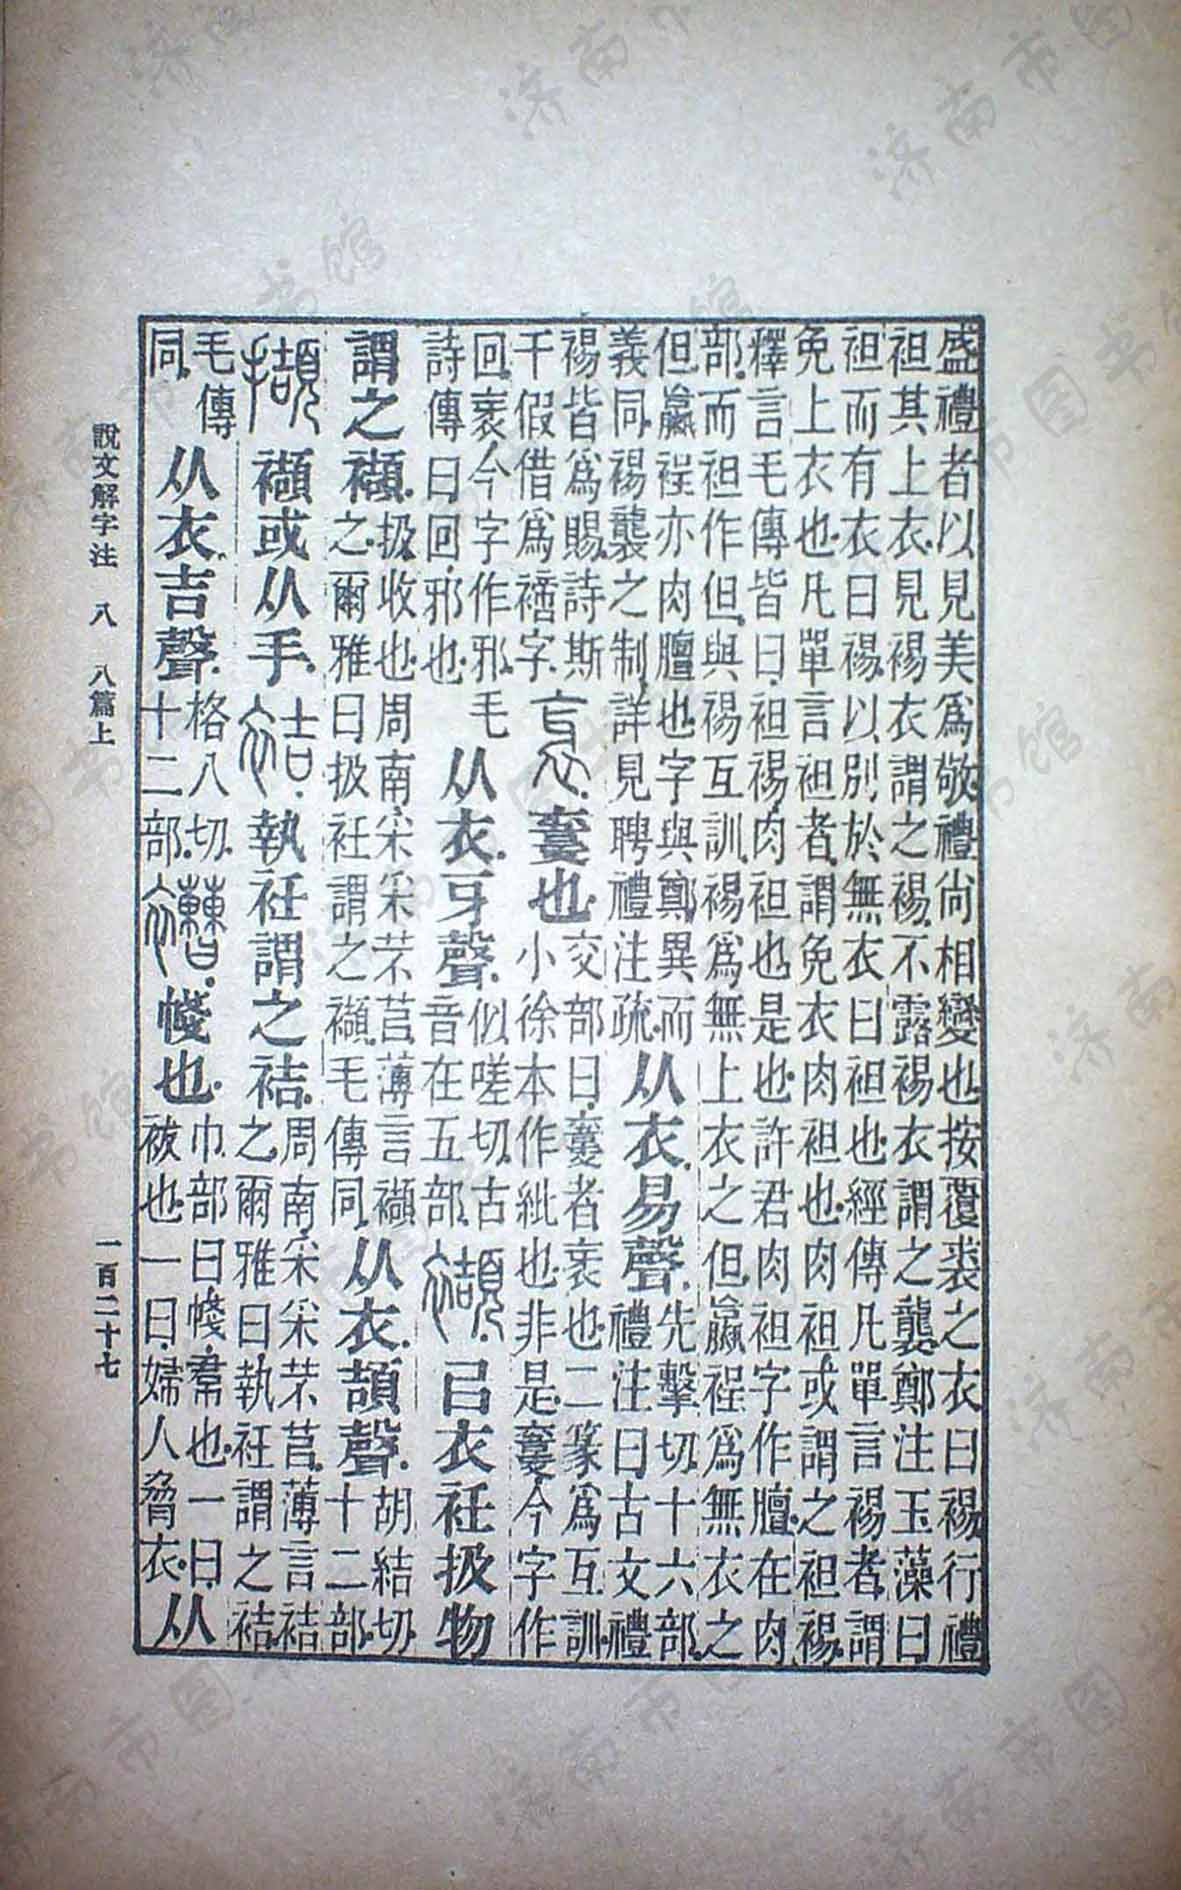 盛禮者以見美爲敬禮尚相變也按覆裘之衣曰裼行禮
袒其上衣見裼衣謂之裼不露裼衣謂之襲鄭注玉藻曰
袒而有衣曰裼以別於無衣曰袒也經傳凡單言裼者謂
免上衣也凡單言袒者謂免衣肉袒也肉袒或謂之袒裼
釋言毛傳皆曰袒裼肉袒也是也許君肉袒字作膻在肉
部而袒作但與裼互訓裼爲無上衣之但臝裎爲無衣之
但臝裎亦肉膻也字與鄭異而
義同裼襲之制詳見聘禮注疏
从衣易聲
先擊切十六部
禮注曰古文禮
裼皆爲賜詩斯
干假借爲字
衺𡚇也
交部曰𡚇者衺也二篆爲互訓
小徐本作紕也非是𡚇今字作
回衺今字作邪毛
詩傳曰回邪也
从衣牙聲
似嗟切古
音在五部
襭㠯衣衽扱物
謂之襭
扱收也周南采采芣苢薄言襭
之爾雅曰扱衽謂之襭毛傳同
从衣頡聲
胡結切
十二部
擷襭或从手
袺執衽謂之袺
周南采采芣苢薄言袺
之爾雅曰執衽謂之袺
毛傳
同
从衣吉聲
格八切
十二部
褿帴也
巾部曰帴帬也一曰
被也一曰婦人脅衣
从
說文解字注 八 八篇上 一百二十七
济南市图书馆